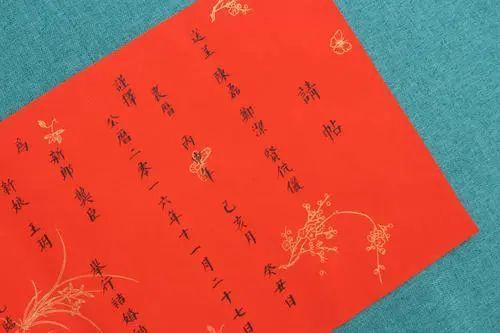 請帖
送呈 陳磊 鄭潔 賢伉儷
農曆 丙申年 己亥月 癸丑日
謹擇 公曆二零一六年十一月二十七日
為 新郎 樊臣 舉行結婚
新娘 王玥